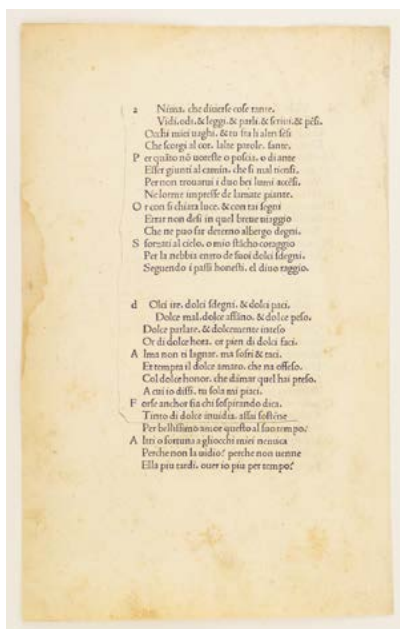 a Nima. che diuerse cose tante.
Vidi. odi. & leggi. & parli. & scriui. & pẽsi.
Occhi miei uaghi. & tu fra li altri sẽsi
Che scorgi al cor. lalte parole. sante.
P er quãto nõ uoreste o poscia. o di ante
Esser giunti al camin. che si mal tiensi.
Per non trouarui i duo bei lumi accẽsi.
Ne lorme impresse de lamate piante.
O r con si chiara luce. & con tai segni
Errar non desi in quel breue uiaggio
Che ne puo far deterno albergo degni.
S forzati al cielo. o mio stãcho coraggio
Per la nebbia entro de suoi dolci sdegni.
Seguendo i passi honesti. el diuo raggio.
d Olci ire. dolci sdegni. & dolci paci.
Dolce mal. dolce affãno. & dolce peso.
Dolce parlare. & dolcemente inteso
Or di dolce hora. or pien di dolci faci.
A lma non ti lagnar. ma sofri & taci.
Et tempra il dolce amaro. che na offeso.
Col dolce honor. che damar quel hai preso.
A cui io dissi. tu sola mi piaci.
F orse anchor fia chi sospirando dica.
Tinto di dolce inuidia. assai sostẽne
Per bellissimo amor questo al suo tempo.
A ltri o fortuna a gliocchi miei nemica
Perche non la uidio? perche non uenne
Ella piu tardi. ouer io piu per tempo?